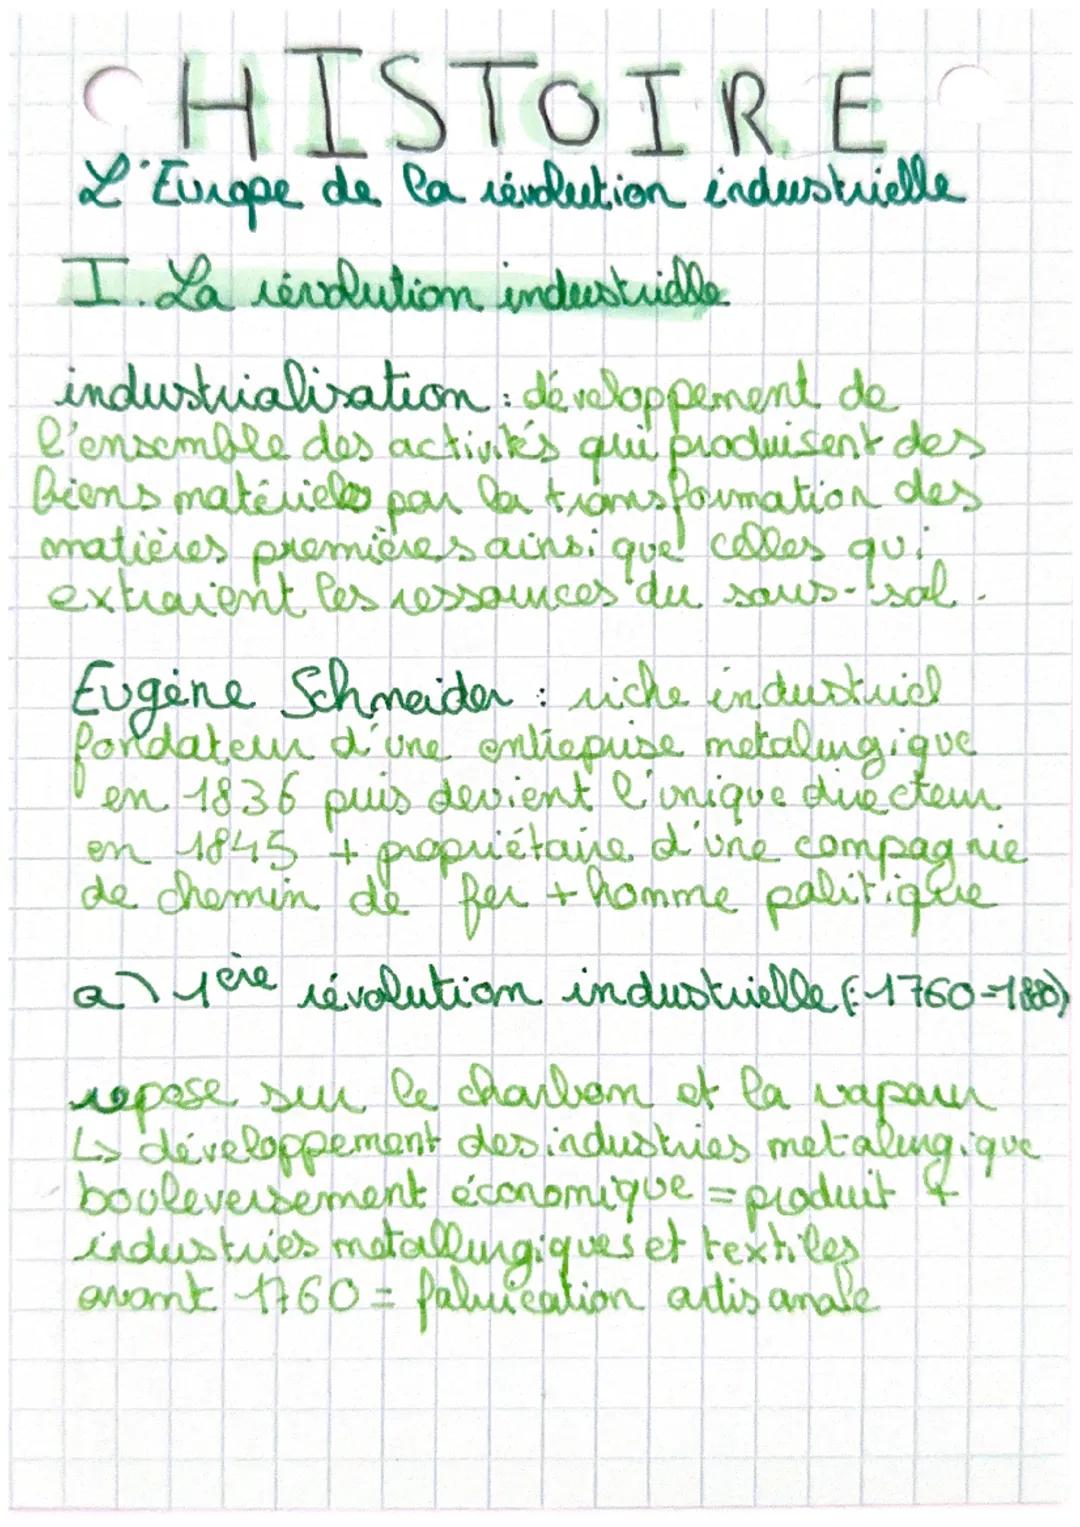 HISTOIRE
L'Europe de la révolution industrielle
I. La révolution industrielle
industrialisation : développement de
l'ensemble des activités qui produisent des
biens matériels par la transformation des
matières premières ainsi que celles qui
extraient les ressources du sous-sol.
Eugène Schneider : riche industriel
fondateur d'une entreprise metalurgique
en 1836 puis devient l'unique directeur
en 1845 + propriétaire d'une compagnie
de chemin de fer + homme politique
a) 1ère révolution industrielle (:1760-1880)
repose sur le charbon et la vapeur
↳ développement des industries metalurgique
bouleversement économique = produit +
industries metallurgiques et textiles
avant 1760 = fabrication artisanale